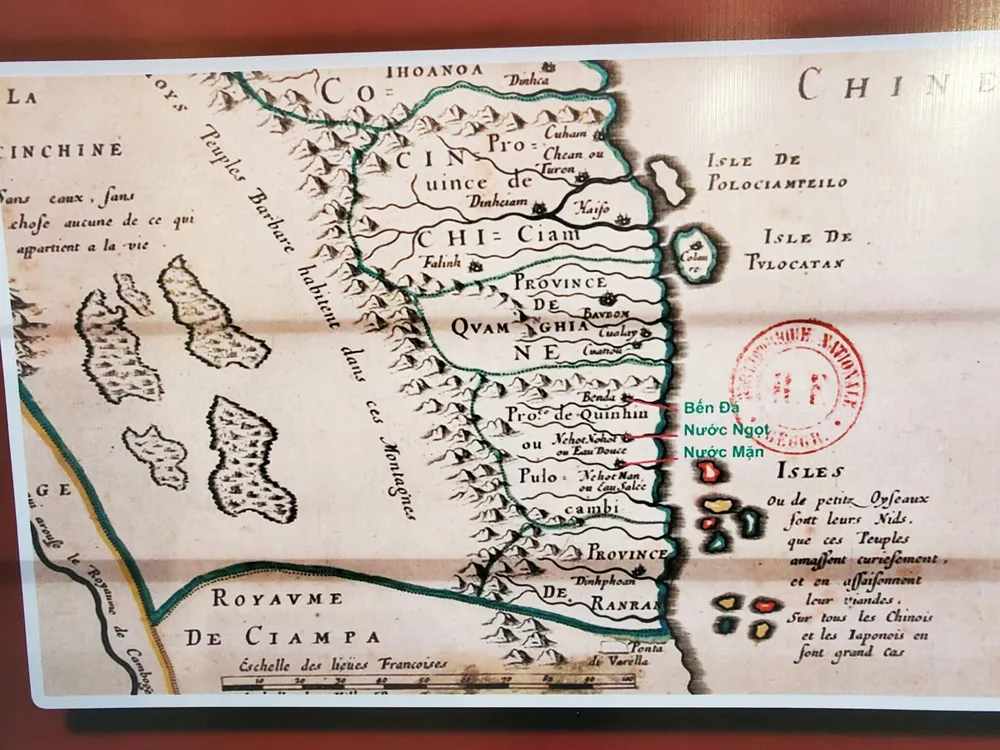 LA
CINCHINE
Sans eaux, sans
chose aucune de ce qui
appartient a la vie.
Peuples Barbare habitent dans ces Montagnes
THOANOA
Dinhca
CO=
CIN
CHI=
Pro=
uince de
Ciam
Cuham
Chean ou
Turon
Dinhciam
Haifo
Falinh
PROVINCE
DE
QVAM GHIA
NE
BAVDOM
Cualay
Benda
Pro.ce de Quinhin
ou
Pulo=
cambi
Nehot Nehot
ou Eau Douce
Nehot Man
ou Eau Salee
PROVINCE
DE
RANRAN
Dinhphoan
Ponta
di Varella
CHINE
ISLE DE
POLOCIAMPEILO
ISLE DE
PVLOCATAN
Bến Đá
Nước Ngọt
Nước Mặn
ISLES
Ou de petitz Oyseaux
font leurs Nids,
que ces Peuples
amassent curiesement,
et en assaisonnent
leur viandes.
Sur tous les Chinois
et les Iaponois en
font grand cas
GE
qui arouse le Royaume de Camboge
ROYAVME
DE CIAMPA
Eschelle des lieües Francoises
10 20 30 40 50 60 70 80 90 100